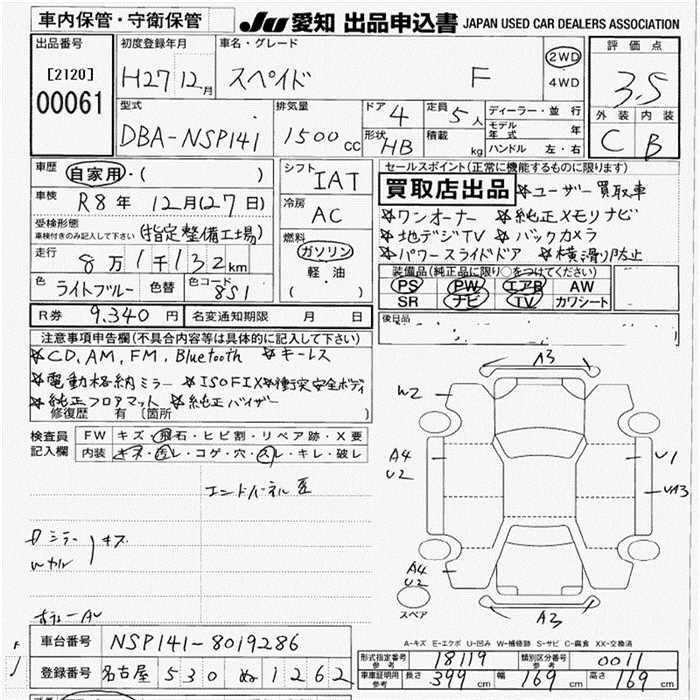 車内保管・守衛保管
JU 愛知 出品申込書 JAPAN USED CAR DEALERS ASSOCIATION
出品番号 [2120] 00061
初度登録年月 H27 12月
車名・グレード スペイド F
2WD
4WD
評価点 3.5
外装 内装
C B
型式 DBA-NSP141
排気量 1500cc
ドア 4
形状 HB
定員 5人
積載 kg
ディーラー・並行
モデル年式 年
ハンドル 左・右
車歴 自家用・( )
車検 R8年 12月(27日)
受検形態 車検付きのみ記入して下さい (指定整備工場)
走行 8万1千132km
色 ライトブルー 色替 色コード 8S1
シフト IAT
冷房 AC
燃料 ガソリン
軽油
( )
R券 9,340円 名変通知期限 月 日
セールスポイント(正常に機能するものに限ります)
買取店出品 ☆ユーザー買取車
☆ワンオーナー ☆純正メモリナビ
☆地デジTV ☆バックカメラ
☆パワースライドドア ☆横滑り防止
装備品(純正品に限り○をつけてください)
PS PW エアB AW
SR ナビ TV カワシート
後日品
注意事項申告欄(不具合内容等は具体的に記入して下さい)
☆CD,AM,FM,Bluetooth ☆キーレス
☆電動格納ミラー ☆ISOFIX☆衝突安全ボディ
☆純正フロアマット ☆純正バイザー
修復歴 有 [箇所 )
検査員記入欄
FW キズ・飛石・ヒビ割・リペア跡・X要
内装 キズ・汚レ・コゲ・穴・スレ・キレ・破レ
A3
W2
A4
U2
U1
UA3
A4
U2
A3
スペア
A-キズ E-エクボ U-凹み W-補修跡 S-サビ C-腐食 XX-交換済
車台番号 NSP141-8019286
登録番号 名古屋 530 ぬ 1262
形式指定番号 参考 18119 類別区分番号 参考 0011
車庫証明用 参考 長さ 399cm 幅 169cm 高さ 169cm